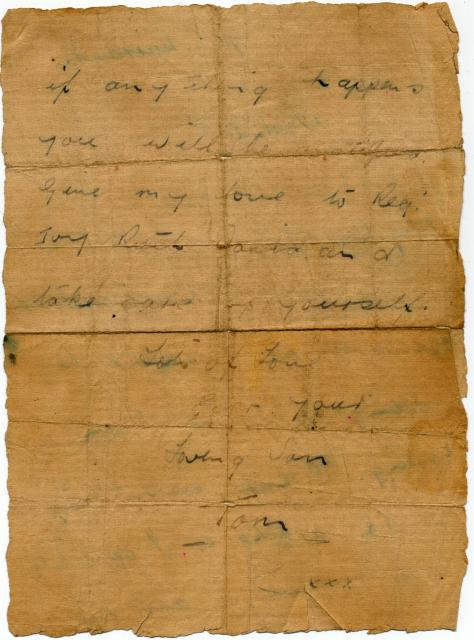 if anything happens
you will be
Give my love to Reg.
Joy Ruth and
take care yourself.
Lots of Love
your
Loving Son
Tom
xxx